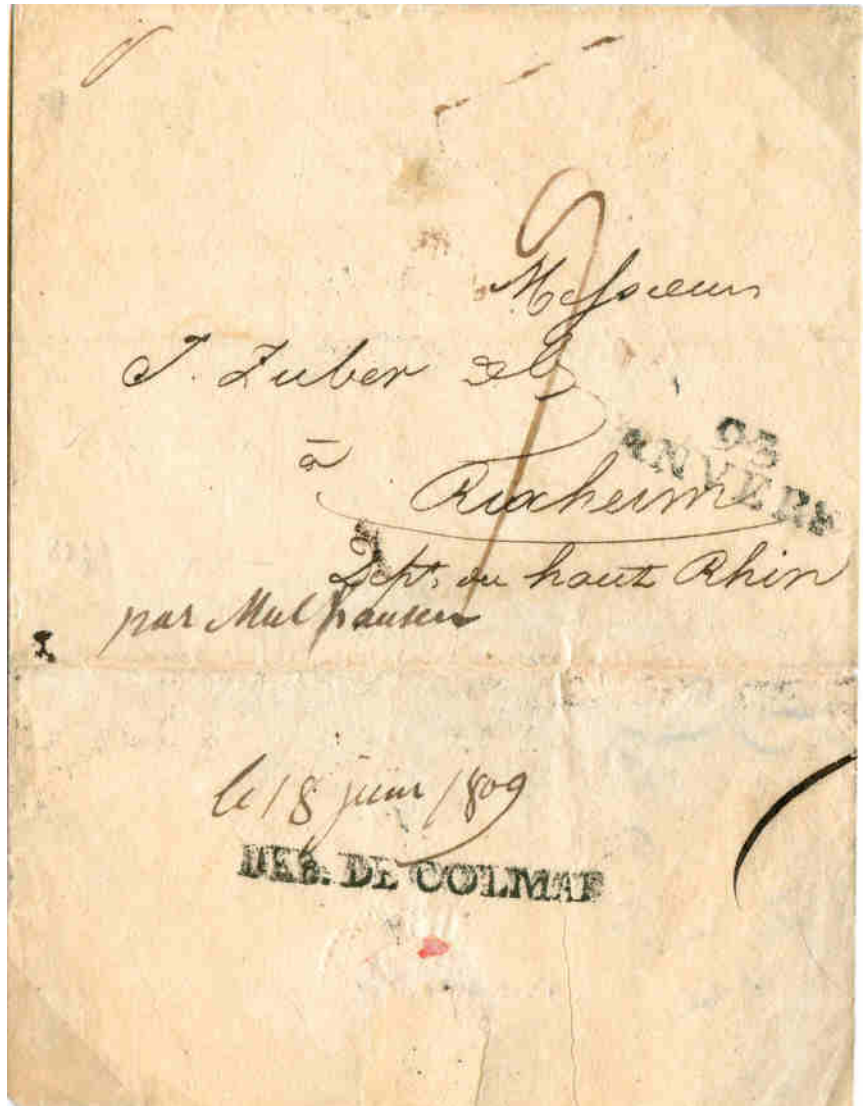 Messieurs
J. Zuber
93
ANVERS
à
Rixheim
Dept. du haut Rhin
par Mulhausen
le 18 juin 1809
DEB. DE COLMAR